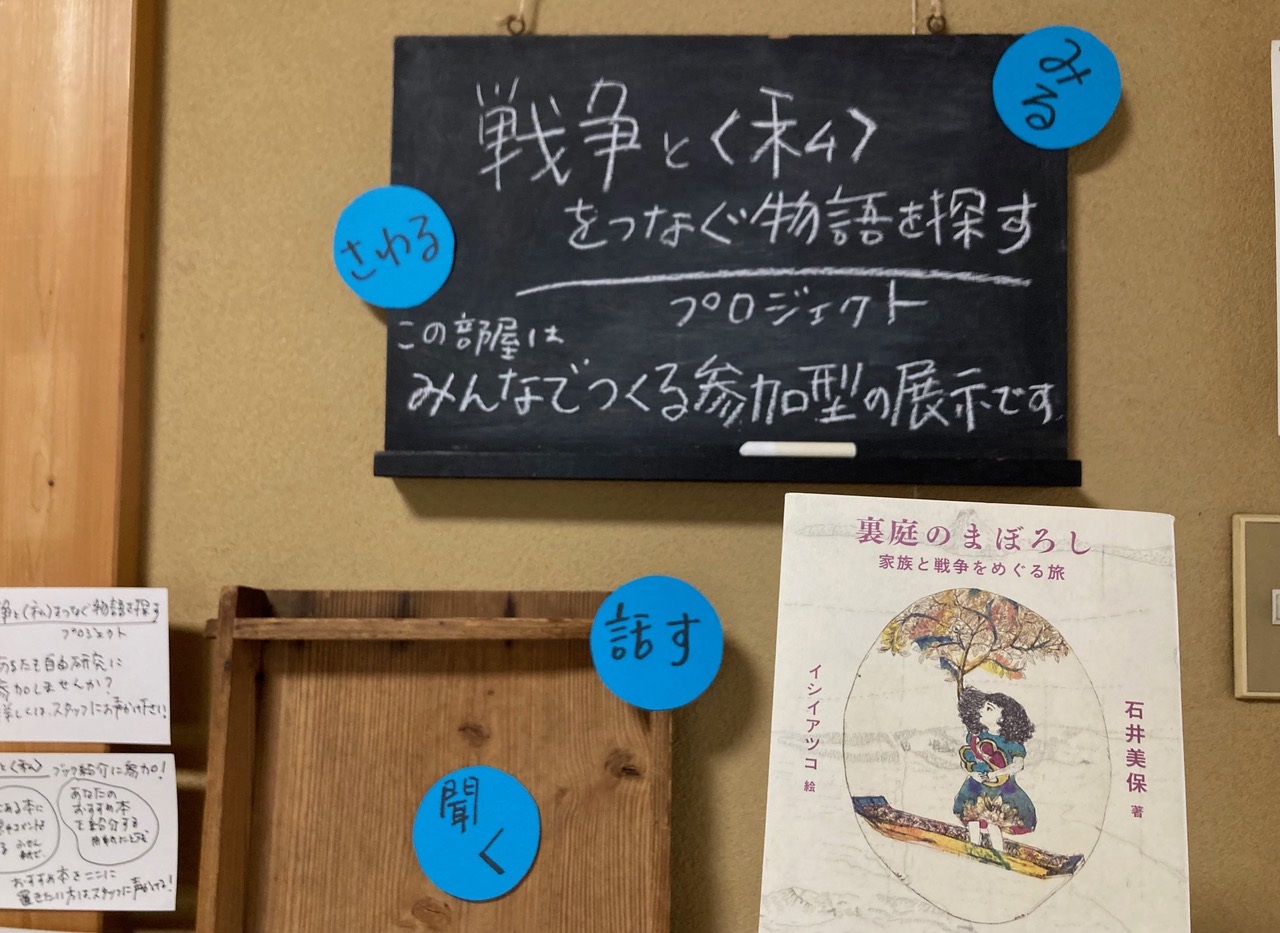 戦争と〈私〉
をつなぐ物語を探す
プロジェクト
この部屋は
みんなでつくる参加型の展示です
みる
さわる
話す
聞く
裏庭のまぼろし
家族と戦争をめぐる旅
石井美保 著
イシイアツコ 絵
争と〈私〉をつなぐ物語を探す
プロジェクト
あなたも自由研究に
参加しませんか?
詳しくは、スタッフにお声かけ下さい!
と〈私〉
ブック紹介に参加!
ある本に
あなたの
おすすめ本
を紹介する
おすすめ本をここに
置きたい方はスタッフに声かけを!